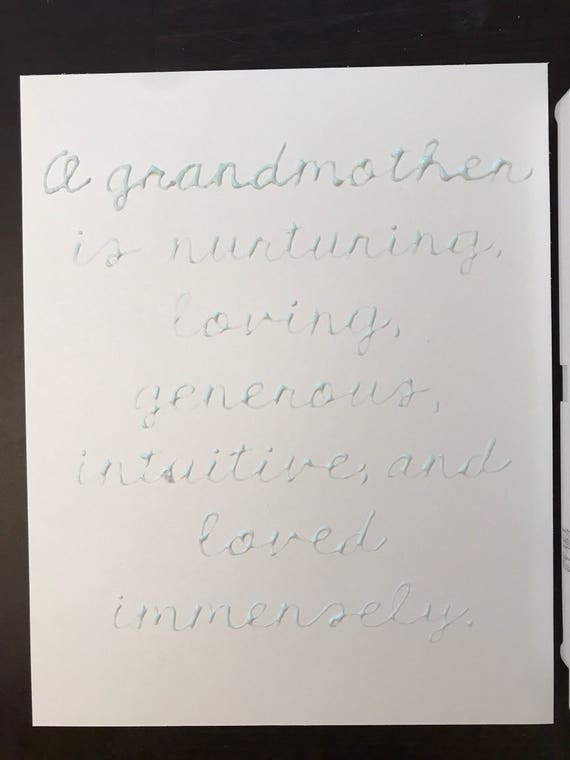 A grandmother
is nurturing,
loving,
generous,
intuitive, and
loved
immensely.